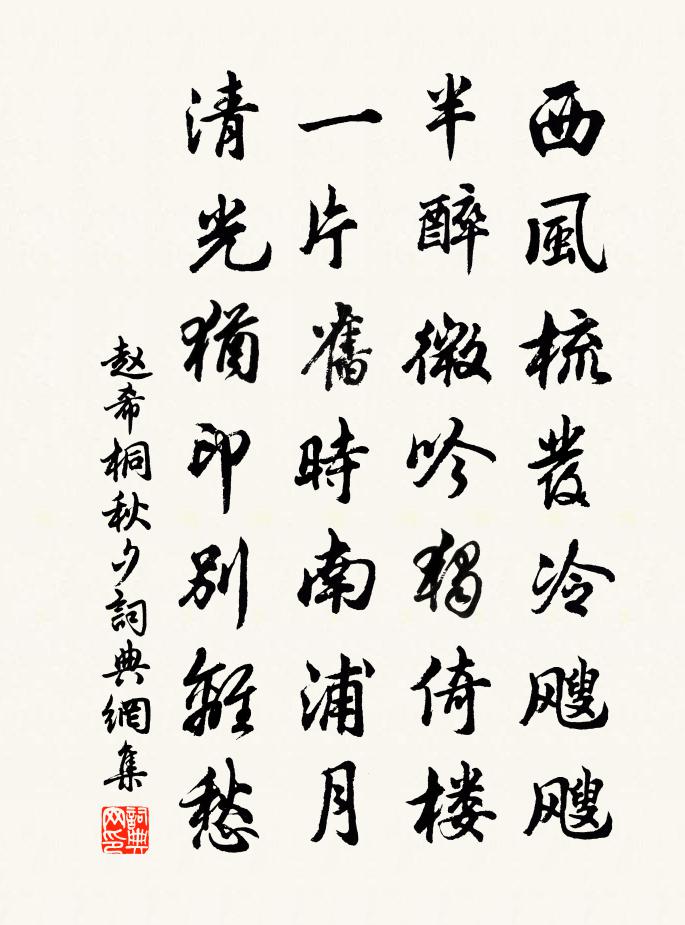 西風梳發冷颼颼
半醉微吟獨倚楼
一片舊時南浦月
清光猶印別離愁
赵希桐秋夕詞典網集
詞典网印